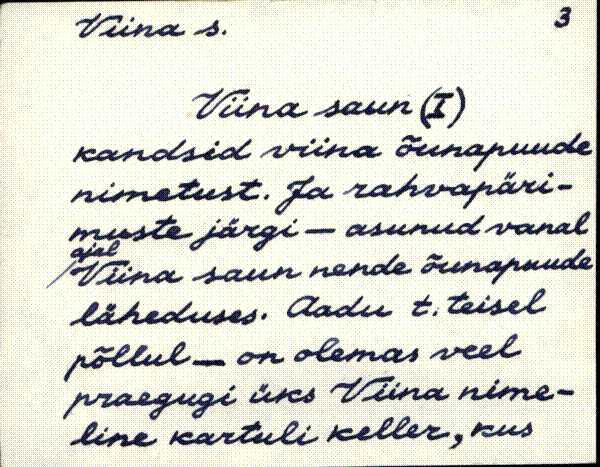 Viina s.
3
Viina saun (I)
kandsid viina õunapuude
nimetust. Ja rahvapäri-
muste järgi — asunud vanal
ajal
Viina saun nende õunapuude
läheduses. Aadu t. teisel
põllul — on olemas veel
praegugi üks Viina nime-
line kartuli keller, kus